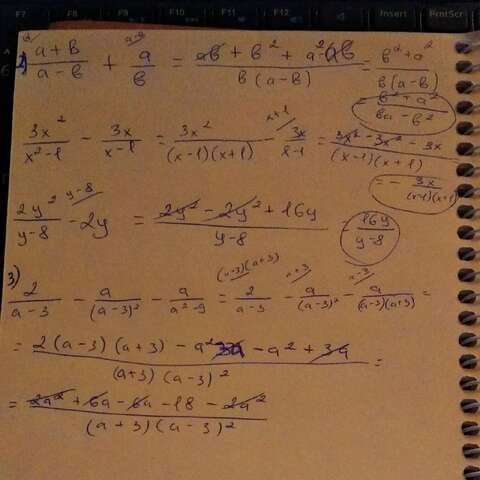 F7 F8 F9 F10 F11 F12 Insert PrntScr
2) (a+b)/(a-b) + a/b ^(a-b) = (ab + b² + a² - ab)/(b(a-b)) = (b² + a²)/(b(a-b)) = (b² + a²)/(ba - b²)
3x²/(x²-1) - 3x/(x-1) = 3x²/((x-1)(x+1)) - 3x/(x-1) ^(x+1) = (3x² - 3x² - 3x)/((x-1)(x+1)) = - 3x/((x-1)(x+1))
2y²/(y-8) - 2y ^(y-8) = (2y² - 2y² + 16y)/(y-8) = 16y/(y-8)
3) 2/(a-3) - a/(a-3)² - a/(a²-9) = 2/(a-3) ^((a-3)(a+3)) - a/(a-3)² ^(a+3) - a/((a-3)(a+3)) ^(a-3) =
= (2(a-3)(a+3) - a² - 3a - a² + 3a)/((a+3)(a-3)²) =
= (2a² + 6a - 6a - 18 - 2a²)/((a+3)(a-3)²)